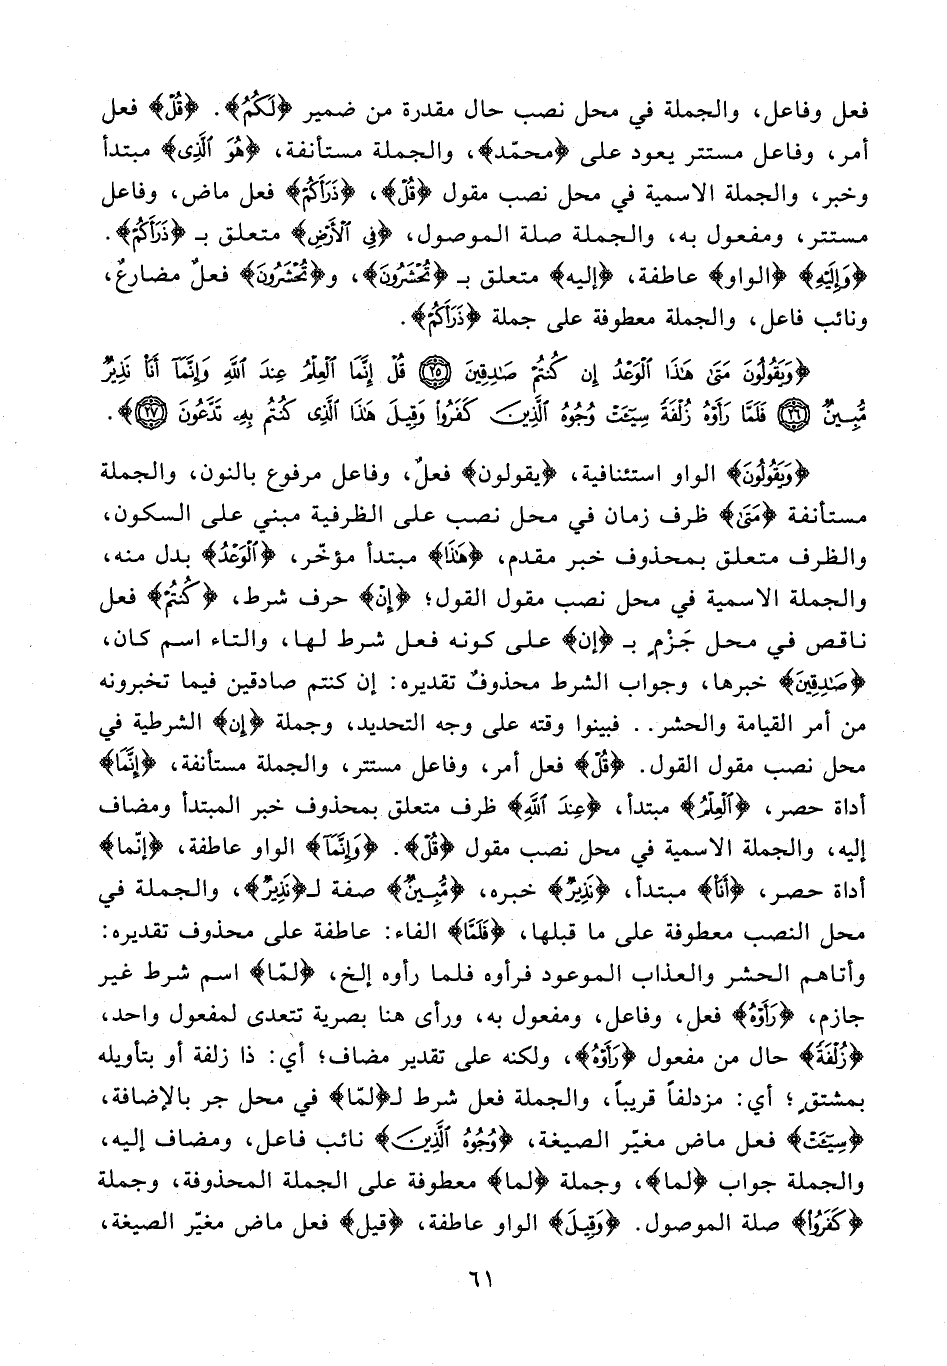 فعل وفاعل، والجملة في محل نصب حال مقدرة من ضمير ﴿لَكُمُ﴾. ﴿قُلْ﴾ فعل
أمر، وفاعل مستتر يعود على ﴿محمّد﴾، والجملة مستأنفة، ﴿هُوَ ٱلَّذِى﴾ مبتدأ
وخبر، والجملة الاسمية في محل نصب مقول ﴿قُلْ﴾، ﴿ذَرَأَكُمْ﴾ فعل ماض، وفاعل
مستتر، ومفعول به، والجملة صلة الموصول، ﴿فِى ٱلْأَرْضِ﴾ متعلق بـ ﴿ذَرَأَكُمْ﴾.
﴿وَإِلَيْهِ﴾ ﴿الواو﴾ عاطفة، ﴿إليه﴾ متعلق بـ ﴿تُحْشَرُونَ﴾، و﴿تُحْشَرُونَ﴾ فعلٌ مضارعٌ،
ونائب فاعل، والجملة معطوفة على جملة ﴿ذَرَأَكُمْ﴾.
﴿وَيَقُولُونَ مَتَىٰ هَٰذَا ٱلْوَعْدُ إِن كُنتُمْ صَٰدِقِينَ ٢٥ قُلْ إِنَّمَا ٱلْعِلْمُ عِندَ ٱللَّهِ وَإِنَّمَآ أَنَا۠ نَذِيرٌ
مُّبِينٌ ٢٦ فَلَمَّا رَأَوْهُ زُلْفَةً سِيٓـَٔتْ وُجُوهُ ٱلَّذِينَ كَفَرُوا۟ وَقِيلَ هَٰذَا ٱلَّذِى كُنتُم بِهِۦ تَدَّعُونَ ٢٧﴾.
﴿وَيَقُولُونَ﴾ الواو استئنافية، ﴿يقولون﴾ فعلٌ، وفاعل مرفوع بالنون، والجملة
مستأنفة ﴿مَتَىٰ﴾ ظرف زمان في محل نصب على الظرفية مبني على السكون،
والظرف متعلق بمحذوف خبر مقدم، ﴿هَٰذَا﴾ مبتدأ مؤخّر، ﴿ٱلْوَعْدُ﴾ بدل منه،
والجملة الاسمية في محل نصب مقول القول؛ ﴿إِنْ﴾ حرف شرط، ﴿كُنتُمْ﴾ فعل
ناقص في محل جَزْمٍ بـ ﴿إن﴾ على كونه فعل شرط لها، والتاء اسم كان،
﴿صَٰدِقِينَ﴾ خبرها، وجواب الشرط محذوفٌ تقديره: إن كنتم صادقين فيما تخبرونه
من أمر القيامة والحشر.. فبينوا وقته على وجه التحديد، وجملة ﴿إن﴾ الشرطية في
محل نصب مقول القول. ﴿قُلْ﴾ فعل أمر، وفاعل مستتر، والجملة مستأنفة، ﴿إِنَّمَا﴾
أداة حصر، ﴿ٱلْعِلْمُ﴾ مبتدأ، ﴿عِندَ ٱللَّهِ﴾ ظرف متعلق بمحذوف خبر المبتدأ ومضاف
إليه، والجملة الاسمية في محل نصب مقول ﴿قُلْ﴾. ﴿وَإِنَّمَآ﴾ الواو عاطفة، ﴿إنّما﴾
أداة حصر، ﴿أَنَا۠﴾ مبتدأ، ﴿نَذِيرٌ﴾ خبره، ﴿مُّبِينٌ﴾ صفة لـ﴿نَذِيرٌ﴾، والجملة في
محل النصب معطوفة على ما قبلها، ﴿فَلَمَّا﴾ الفاء: عاطفة على محذوف تقديره:
وأتاهم الحشر والعذاب الموعود فرأوه فلما رأوه إلخ، ﴿لمّا﴾ اسم شرط غير
جازم، ﴿رَأَوْهُ﴾ فعل، وفاعل، ومفعول به، ورأى هنا بصرية تتعدى لمفعول واحد،
﴿زُلْفَةً﴾ حال من مفعول ﴿رَأَوْهُ﴾، ولكنه على تقدير مضاف؛ أي: ذا زلفة أو بتأويله
بمشتقٍ؛ أي: مزدلفاً قريباً، والجملة فعل شرط لـ﴿لمّا﴾ في محل جر بالإضافة،
﴿سِيٓـَٔتْ﴾ فعل ماض مغيّر الصيغة، ﴿وُجُوهُ ٱلَّذِينَ﴾ نائب فاعل، ومضاف إليه،
والجملة جواب ﴿لما﴾، وجملة ﴿لما﴾ معطوفة على الجملة المحذوفة، وجملة
﴿كَفَرُوا۟﴾ صلة الموصول. ﴿وَقِيلَ﴾ الواو عاطفة، ﴿قيل﴾ فعل ماض مغيّر الصيغة،
٦١